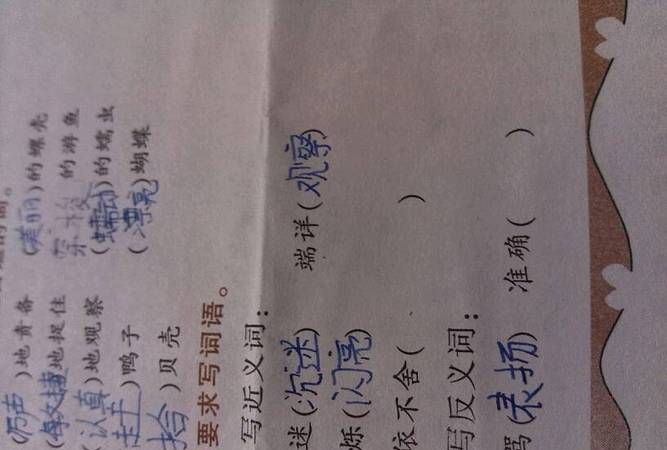 的词。
(厉声)地责备 (美丽)的螺壳
地捉住 的游鱼
(认真)地观察 (蠕动)的蠕虫
)鸭子 (漂亮)蝴蝶
拾)贝壳
要求写词语。
写近义词:
迷(沉迷) 端详(观察)
烁(闪亮)
依不舍( )
写反义词:
骂(表扬) 准确( )